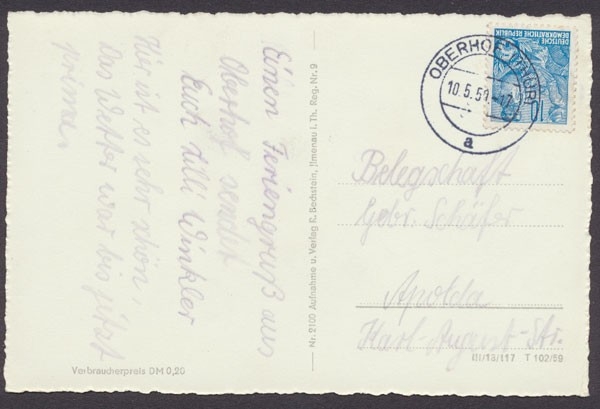 Einen Feriengruß aus
Oberhof sendet
Euch Lilli Winkler
Hier ist es sehr schön,
Das Wetter war bis jetzt
prima.
Verbraucherpreis DM 0,20
Nr. 2100 Aufnahme u. Verlag E. Bechstein, Ilmenau i. Th. Reg. Nr. 9
DEUTSCHE
DEMOKRATISCHE REPUBLIK
10
OBERHOF (THÜR)
10.5.59
a
Belegschaft
Gebr. Schäfer
Apolda
Karl-August-Str.
III/13/117 T 102/59